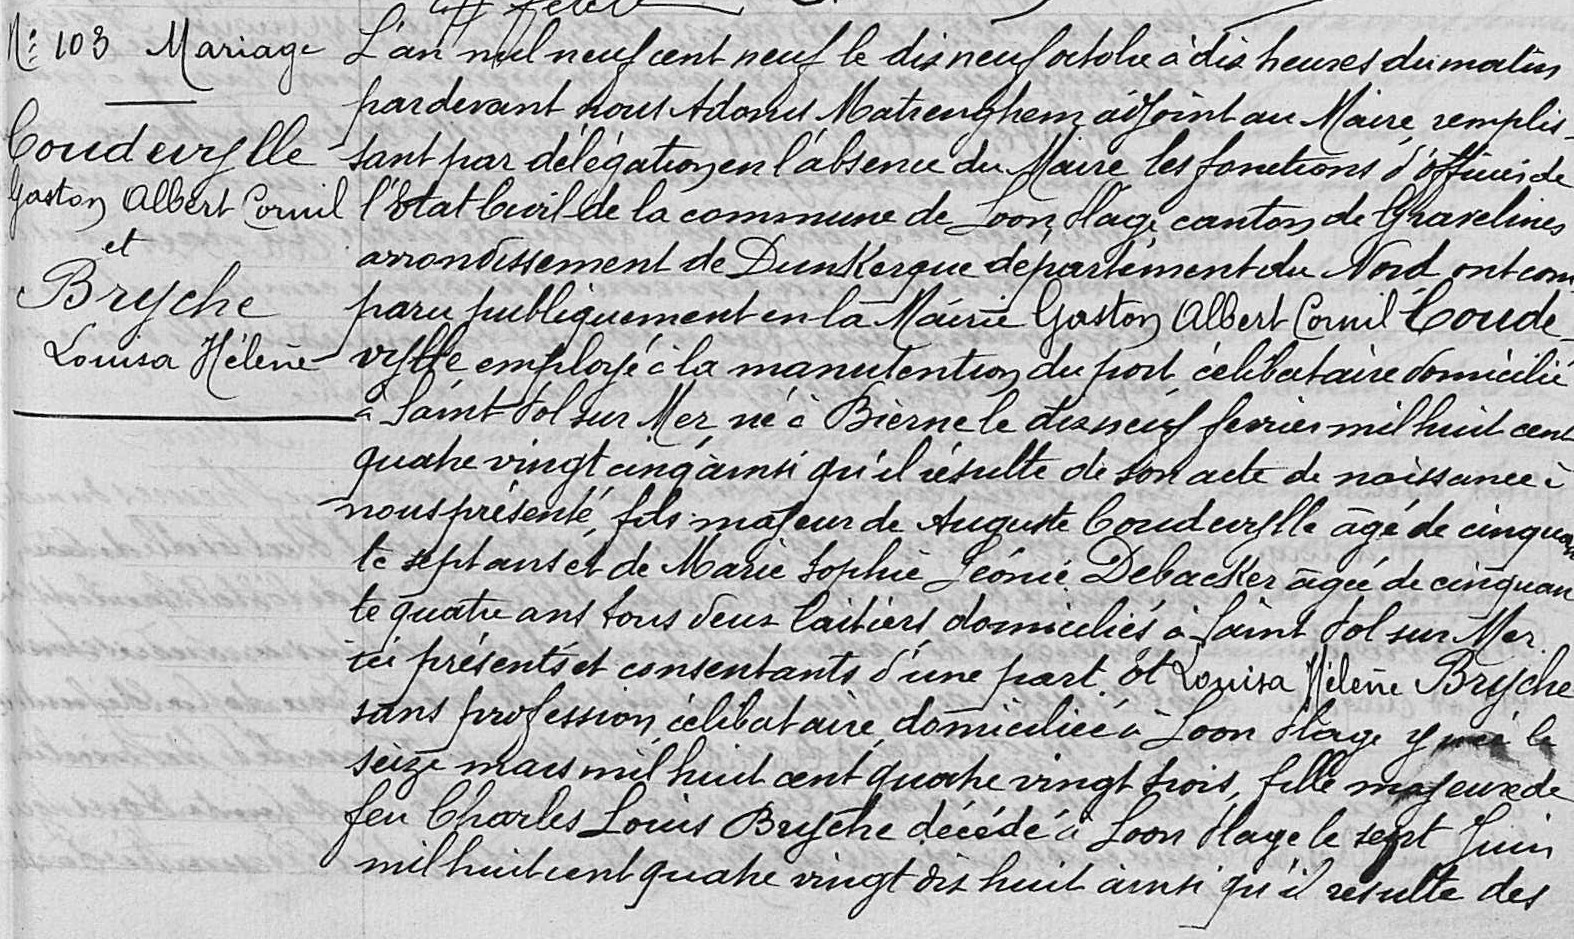 N° 103 Mariage
Coudevylle
Gaston Albert Cornil
et
Bryche
Louisa Hélène
L'an mil neuf cent neuf le dix neuf octobre à dix heures du matin
par devant nous Adonis Matrenghem adjoint au Maire remplis-
sant par délégation en l'absence du Maire les fonctions d'officier de
l'Etat Civil de la commune de Loon Plage canton de Gravelines
arrondissement de Dunkerque département du Nord ont com
paru publiquement en la Mairie Gaston Albert Cornil Coude-
vylle employé à la manutention du port célibataire domicilié
à Saint Pol sur Mer né à Bierne le dix neuf fevrier mil huit cent
quatre vingt cinq ainsi qu'il résulte de son acte de naissance à
nous présenté, fils majeur de Auguste Coudevylle âgé de cinquan
te sept ans et de Marie Sophie Léonie Debacker âgée de cinquan
te quatre ans tous deux laitiers domiciliés à Saint Pol sur Mer
ici présents et consentants d'une part. Et Louisa Hélène Bryche
sans profession, célibataire, domiciliée à Loon Plage y née le
seize mars mil huit cent quatre vingt trois, fille majeure de
feu Charles Louis Bryche décédé à Loon Plage le sept Juin
mil huit cent quatre vingt dix huit ainsi qu'il résulte des